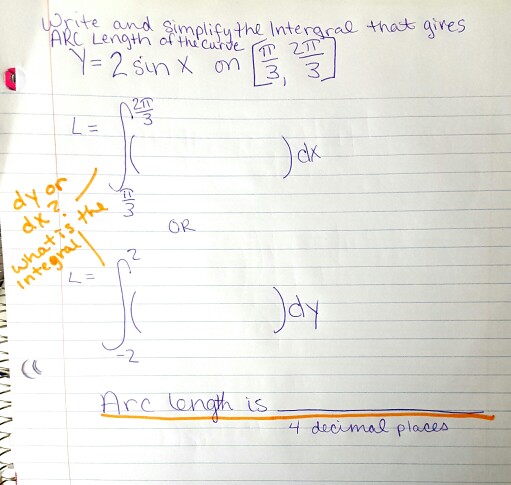 Write and Simplify the Intergral that gives
ARC Length of the curve
Y = 2 sin x on [π/3, 2π/3]
L = ∫_{π/3}^{2π/3} ( ) dx
dy or
dx?
what is the
integral
OR
L = ∫_{-2}^{2} ( ) dy
Arc length is ____________
4 decimal places